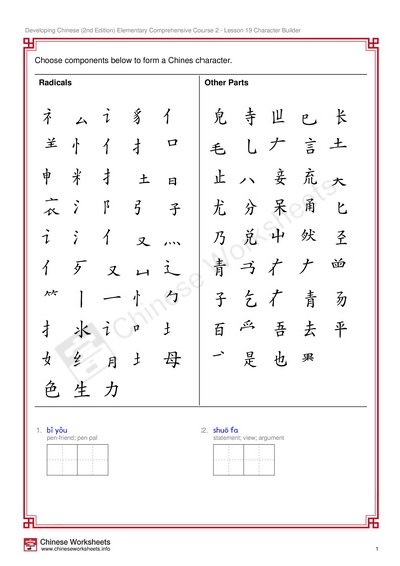 Developing Chinese (2nd Edition) Elementary Comprehensive Course 2 - Lesson 19 Character Builder
Choose components below to form a Chines character.
Radicals
Other Parts
礻 厶 讠 豸 亻
皃 寺 世 巳 长
⺶ 忄 亻 扌 口
乇 乚 𠂇 言 土
申 米 扌 土 日
止 八 妾 㐬 天
衣 氵 阝 弓 子
尤 分 呆 甬 匕
讠 氵 亻 又 灬
乃 兑 屮 然 圣
亻 歹 又 凵 辶
青 𠂇
⺮ 丨 一 忄 勹
子 乞 青 昜
扌 水 讠 口 土
百 吾 去 平
女 纟 月 土 母
是 也
色 生 力
1. bǐ yǒu
pen-friend; pen pal
2. shuō fa
statement; view; argument
Chinese Worksheets
Chinese Worksheets
www.chineseworksheets.info
1